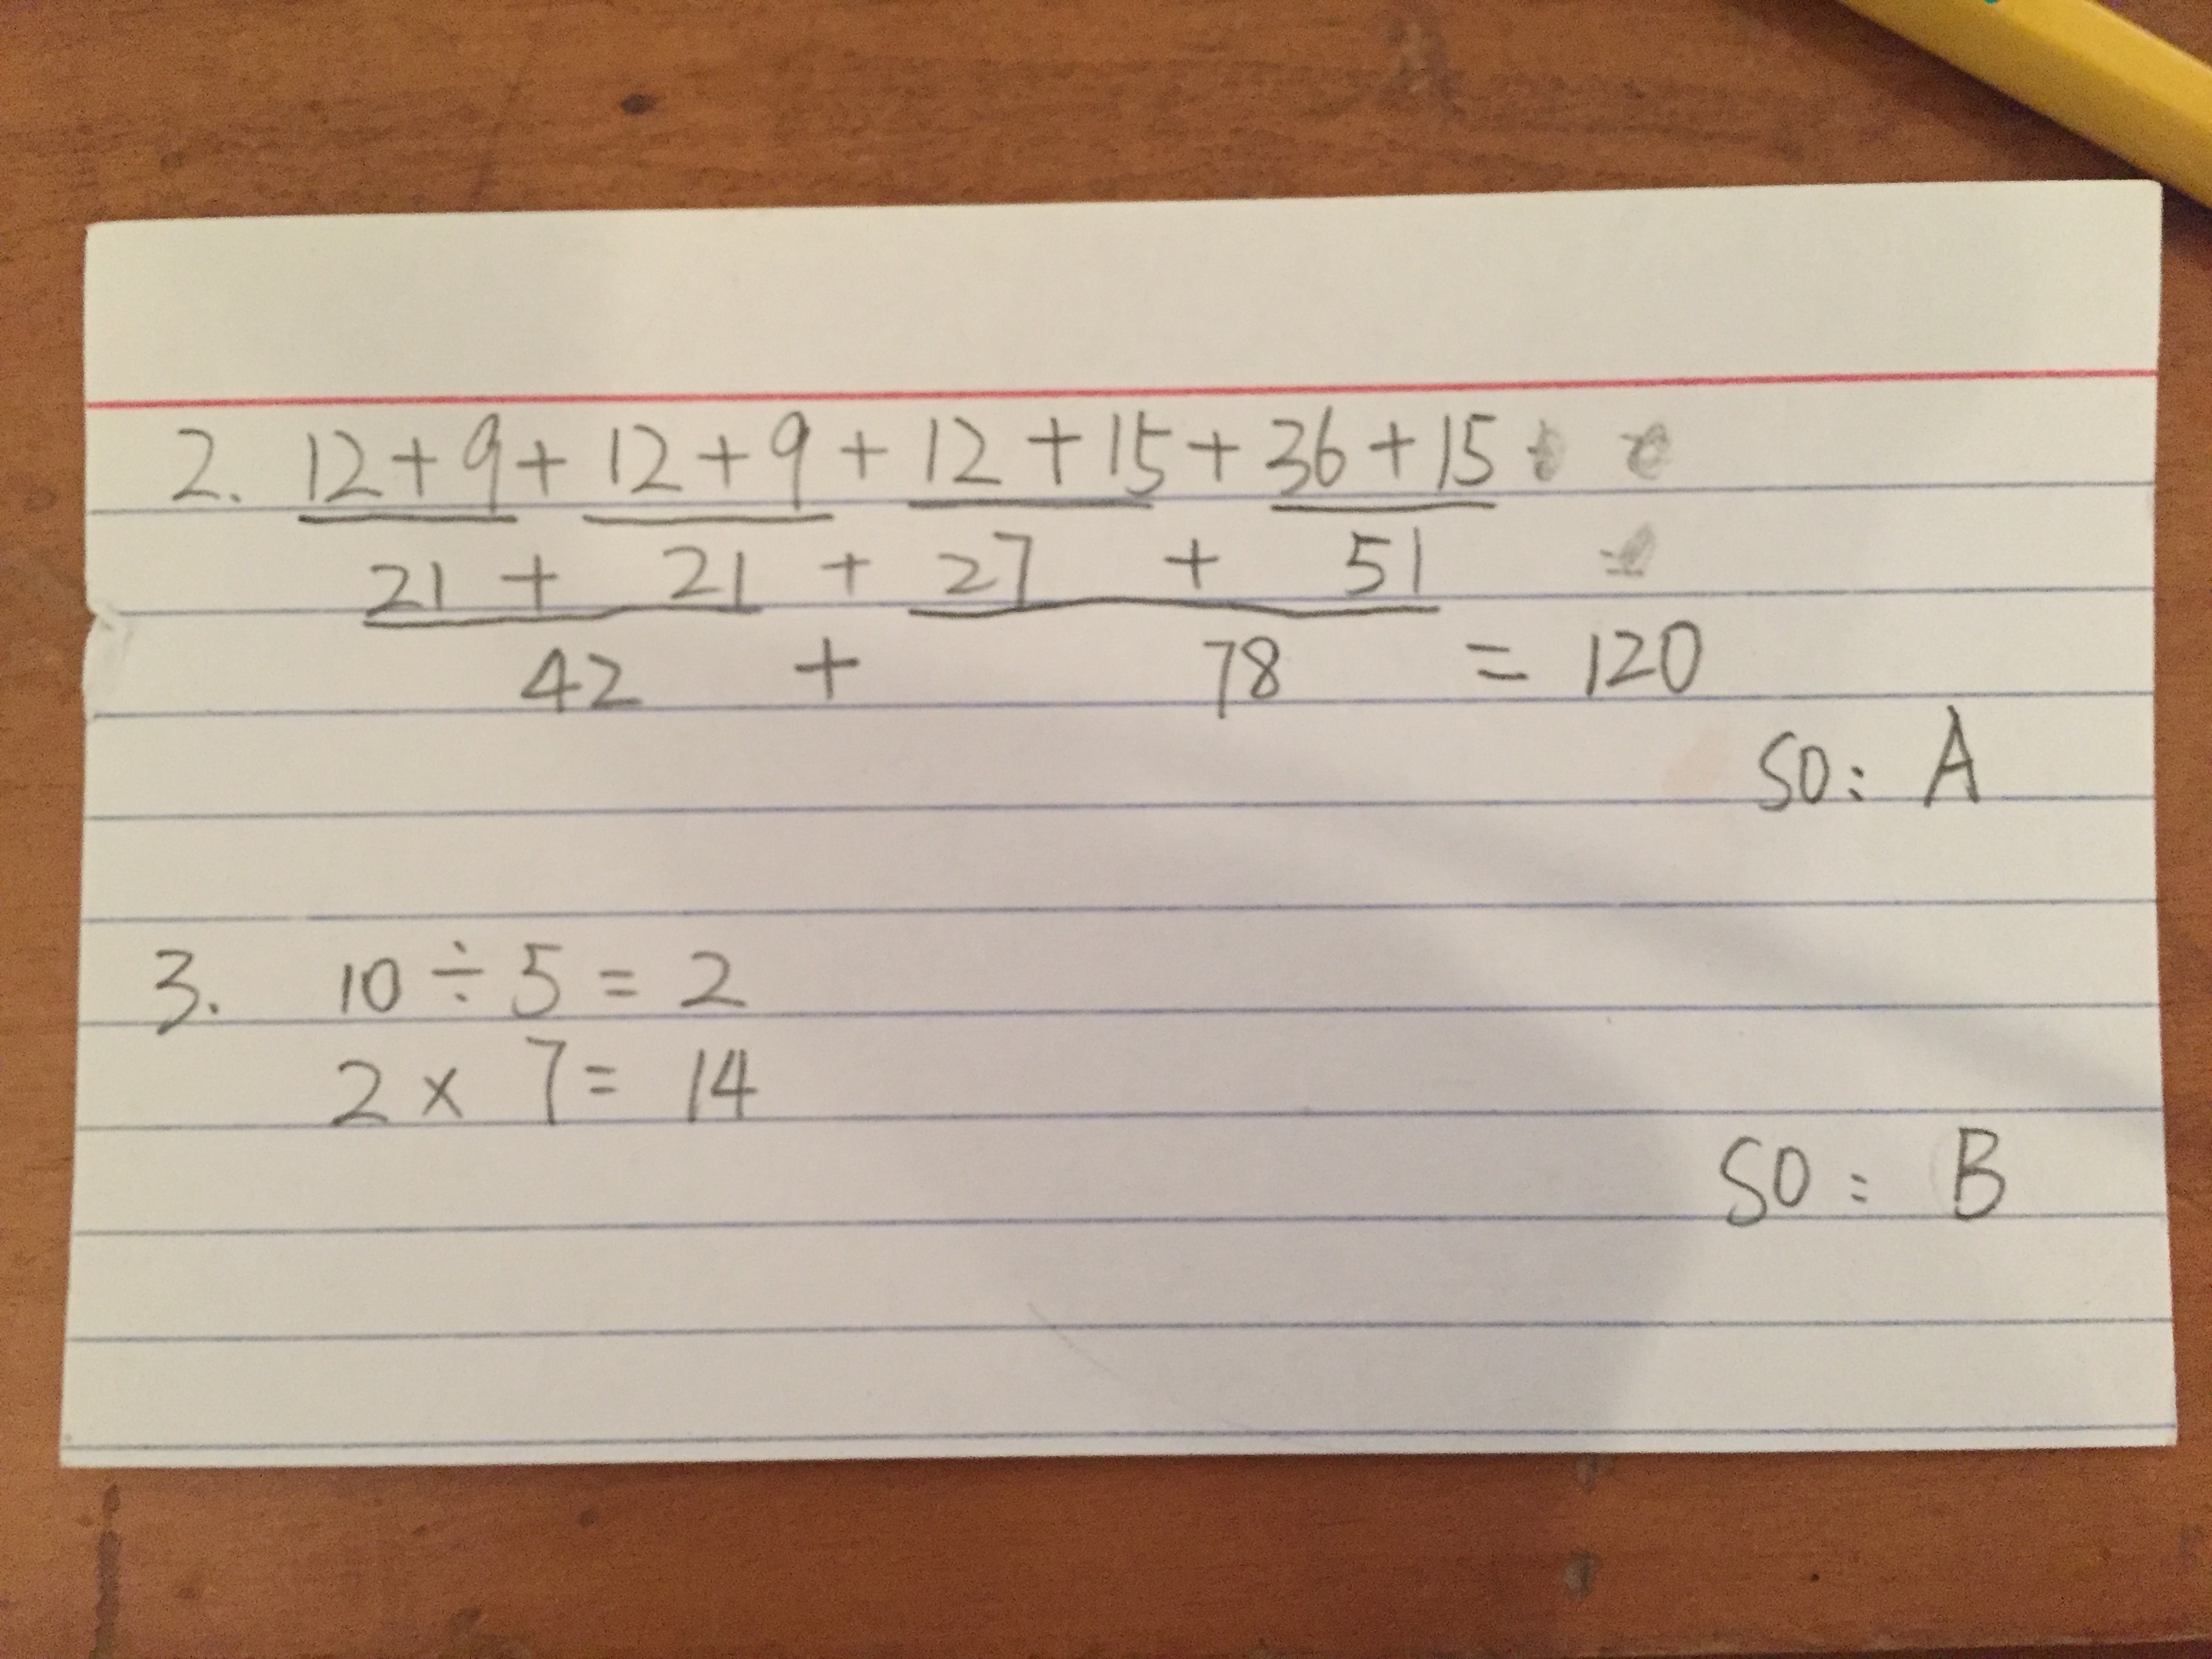 2. 12+9+12+9+12+15+36+15
21 + 21 + 27 + 51
42 + 78 = 120
SO: A
3. 10÷5=2
2×7=14
SO: B